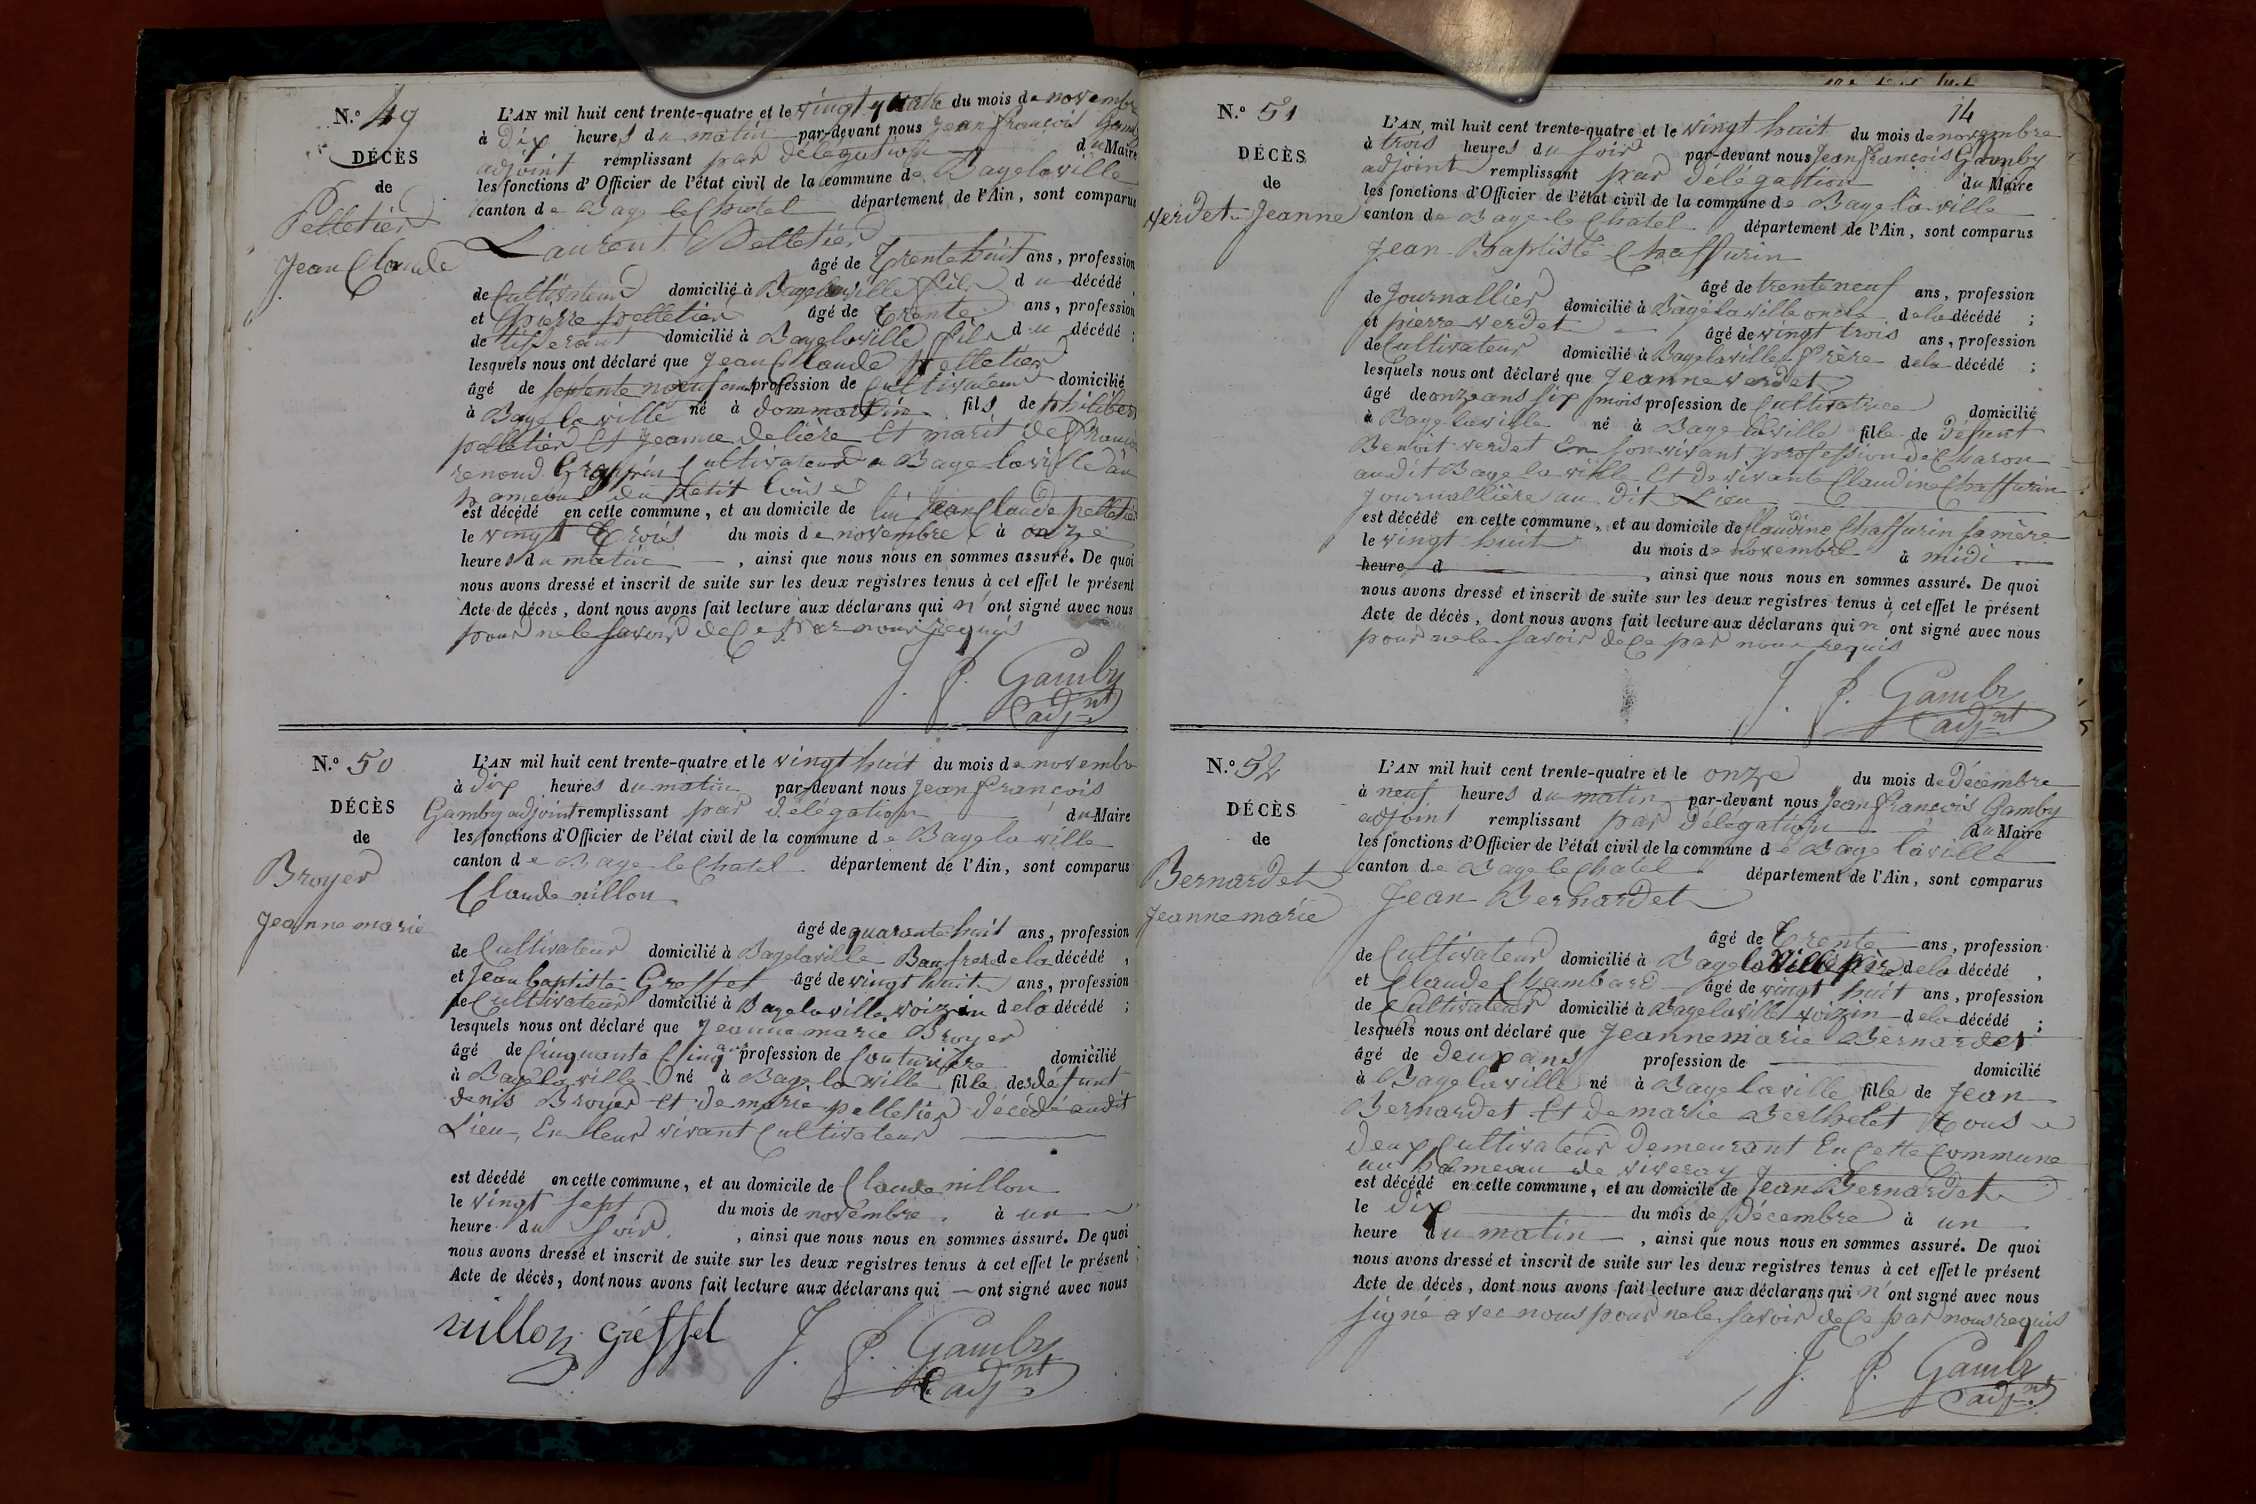 N.° 49
DÉCÈS
de
Pelletier
Jean Claude
L'AN mil huit cent trente-quatre et le vingt quatre du mois de novembre
à dix heures du matin par-devant nous Jean françois Gamby
adjoint remplissant par délégation du Maire
les fonctions d'Officier de l'état civil de la commune de Bagelaville
canton de Bage le Chatel département de l'Ain, sont comparus
Laurent Pelletier
âgé de Trente huit ans, profession
de Cultivateur domicilié à Bagelaville fils du décédé,
et pierre pelletier âgé de trente ans, profession
de tisserant domicilié à Bagelaville fils du décédé;
lesquels nous ont déclaré que Jean Claude Pelletier
âgé de septente neuf ans profession de Cultivateur domicilié
à Bage la ville né à dommartin fils de philibert
pelletier et jeanne delière et marit de
renoud Cultivateur a Bage laville au
hameau du petit
est décédé en cette commune, et au domicile de lui Jean Claude pelletier
le vingt trois du mois de novembre à onze
heures du matin, ainsi que nous nous en sommes assuré. De quoi
nous avons dressé et inscrit de suite sur les deux registres tenus à cet effet le présent
Acte de décès, dont nous avons fait lecture aux déclarans qui n'ont signé avec nous
pour ne le savoir de ce par nous requis
J. f. Gamby
adjnt
N.° 50
DÉCÈS
de
Broyer
Jeanne marie
L'AN mil huit cent trente-quatre et le vingt huit du mois de novembre
à dix heures du matin par-devant nous Jean françois
Gamby adjoint remplissant par délégation du Maire
les fonctions d'Officier de l'état civil de la commune de Bage la ville
canton de Bage le Chatel département de l'Ain, sont comparus
Claude nillon
âgé de quarante huit ans, profession
de Cultivateur domicilié à Bagelaville Baufrer de la décédé,
et Jean baptiste Greffet âgé de vingt huit ans, profession
de Cultivateur domicilié à Bagelaville voizin de la décédé;
lesquels nous ont déclaré que Jeanne marie Broyer
âgé de Cinquante Cinq ans profession de Couturière domicilié
à Bage la ville né à Bage la ville fille des défunt
denis Broyer et de marie pelletier décédé audit
Lieu, En leur vivant Cultivateur
est décédé en cette commune, et au domicile de Claude nillon
le vingt sept du mois de novembre à un
heure du soir, ainsi que nous nous en sommes assuré. De quoi
nous avons dressé et inscrit de suite sur les deux registres tenus à cet effet le présent
Acte de décès, dont nous avons fait lecture aux déclarans qui — ont signé avec nous
nillon greffet J. f. Gamby
adjnt
14
N.° 51
DÉCÈS
de
verdet Jeanne
L'AN mil huit cent trente-quatre et le vingt huit du mois de novembre
à trois heures du soir par-devant nous Jean françois Gamby
adjoint remplissant par délégation du Maire
les fonctions d'Officier de l'état civil de la commune de Bage la ville
canton de Bage le Chatel département de l'Ain, sont comparus
Jean Baptiste Chaffurin
âgé de trente neuf ans, profession
de Journallier domicilié à Bagé laville oncle de la décédé;
et pierre verdet âgé de vingt trois ans, profession
de Cultivateur domicilié à Bagelaville frère de la décédé;
lesquels nous ont déclaré que Jeanne verdet
âgé de onze ans six mois profession de Cultivatrice domicilié
à Bage laville né à Bage laville fille de défunt
Benoit verdet En son vivant profession de Charon
audit Bage la ville et de vivante Claudine Chaffurin
Journallière au dit Lieu
est décédé en cette commune, et au domicile de Claudine Chaffurin sa mère
le vingt huit du mois de novembre à midi
heure d, ainsi que nous nous en sommes assuré. De quoi
nous avons dressé et inscrit de suite sur les deux registres tenus à cet effet le présent
Acte de décès, dont nous avons fait lecture aux déclarans qui n'ont signé avec nous
pour ne le savoir de ce par nous requis
J. f. Gamby
adjnt
N.° 52
DÉCÈS
de
Bernardet
Jeanne marie
L'AN mil huit cent trente-quatre et le onze du mois de décembre
à neuf heures du matin par-devant nous Jean françois Gamby
adjoint remplissant par délégation du Maire
les fonctions d'Officier de l'état civil de la commune de Bage laville
canton de Bage le Chatel département de l'Ain, sont comparus
Jean Bernardet
âgé de trente ans, profession
de Cultivateur domicilié à Bage la Ville père de la décédé,
et Claude Chambard âgé de vingt huit ans, profession
de Cultivateur domicilié à Bagelaville voizin de la décédé;
lesquels nous ont déclaré que Jeanne marie Bernardet
âgé de deux ans profession de domicilié
à Bage laville né à Bage laville fille de Jean
Bernardet et de marie Berthelet tous
deux Cultivateur demeurant En Cette Commune
au hameau de viveray
est décédé en cette commune, et au domicile de Jean Bernardet
le dix du mois de décembre à un
heure du matin, ainsi que nous nous en sommes assuré. De quoi
nous avons dressé et inscrit de suite sur les deux registres tenus à cet effet le présent
Acte de décès, dont nous avons fait lecture aux déclarans qui n'ont signé avec nous
signé avec nous pour ne le savoir de ce par nous requis
J. f. Gamby
adjnt